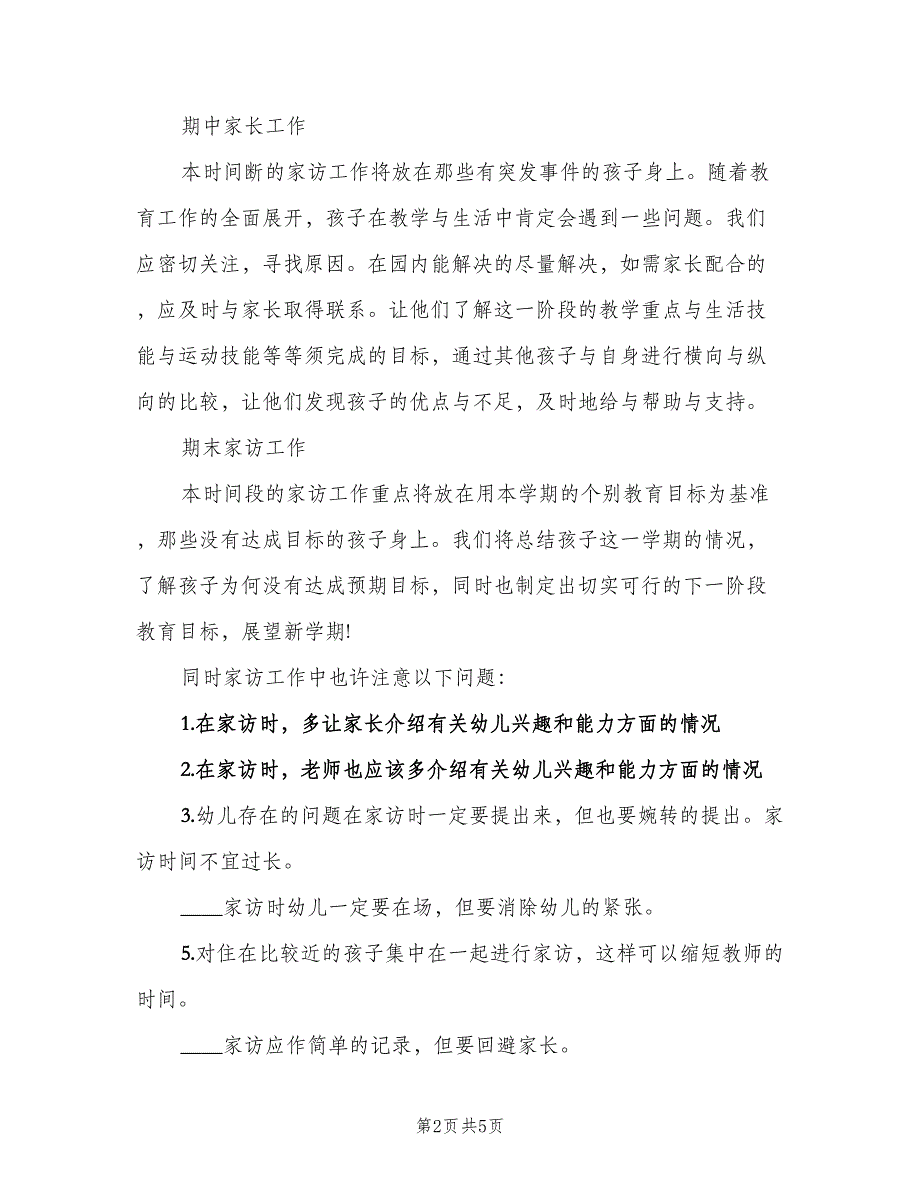 期中家长工作
本时间断的家访工作将放在那些有突发事件的孩子身上。随着教
育工作的全面展开，孩子在教学与生活中肯定会遇到一些问题。我们
应密切关注，寻找原因。在园内能解决的尽量解决，如需家长配合的
，应及时与家长取得联系。让他们了解这一阶段的教学重点与生活技
能与运动技能等等须完成的目标，通过其他孩子与自身进行横向与纵
向的比较，让他们发现孩子的优点与不足，及时地给与帮助与支持。
期末家访工作
本时间段的家访工作重点将放在用本学期的个别教育目标为基准
，那些没有达成目标的孩子身上。我们将总结孩子这一学期的情况，
了解孩子为何没有达成预期目标，同时也制定出切实可行的下一阶段
教育目标，展望新学期!
同时家访工作中也许注意以下问题：
1.在家访时，多让家长介绍有关幼儿兴趣和能力方面的情况
2.在家访时，老师也应该多介绍有关幼儿兴趣和能力方面的情况
3.幼儿存在的问题在家访时一定要提出来，但也要婉转的提出。家
访时间不宜过长。
____家访时幼儿一定要在场，但要消除幼儿的紧张。
5.对住在比较近的孩子集中在一起进行家访，这样可以缩短教师的
时间。
____家访应作简单的记录，但要回避家长。
第2页 共5页